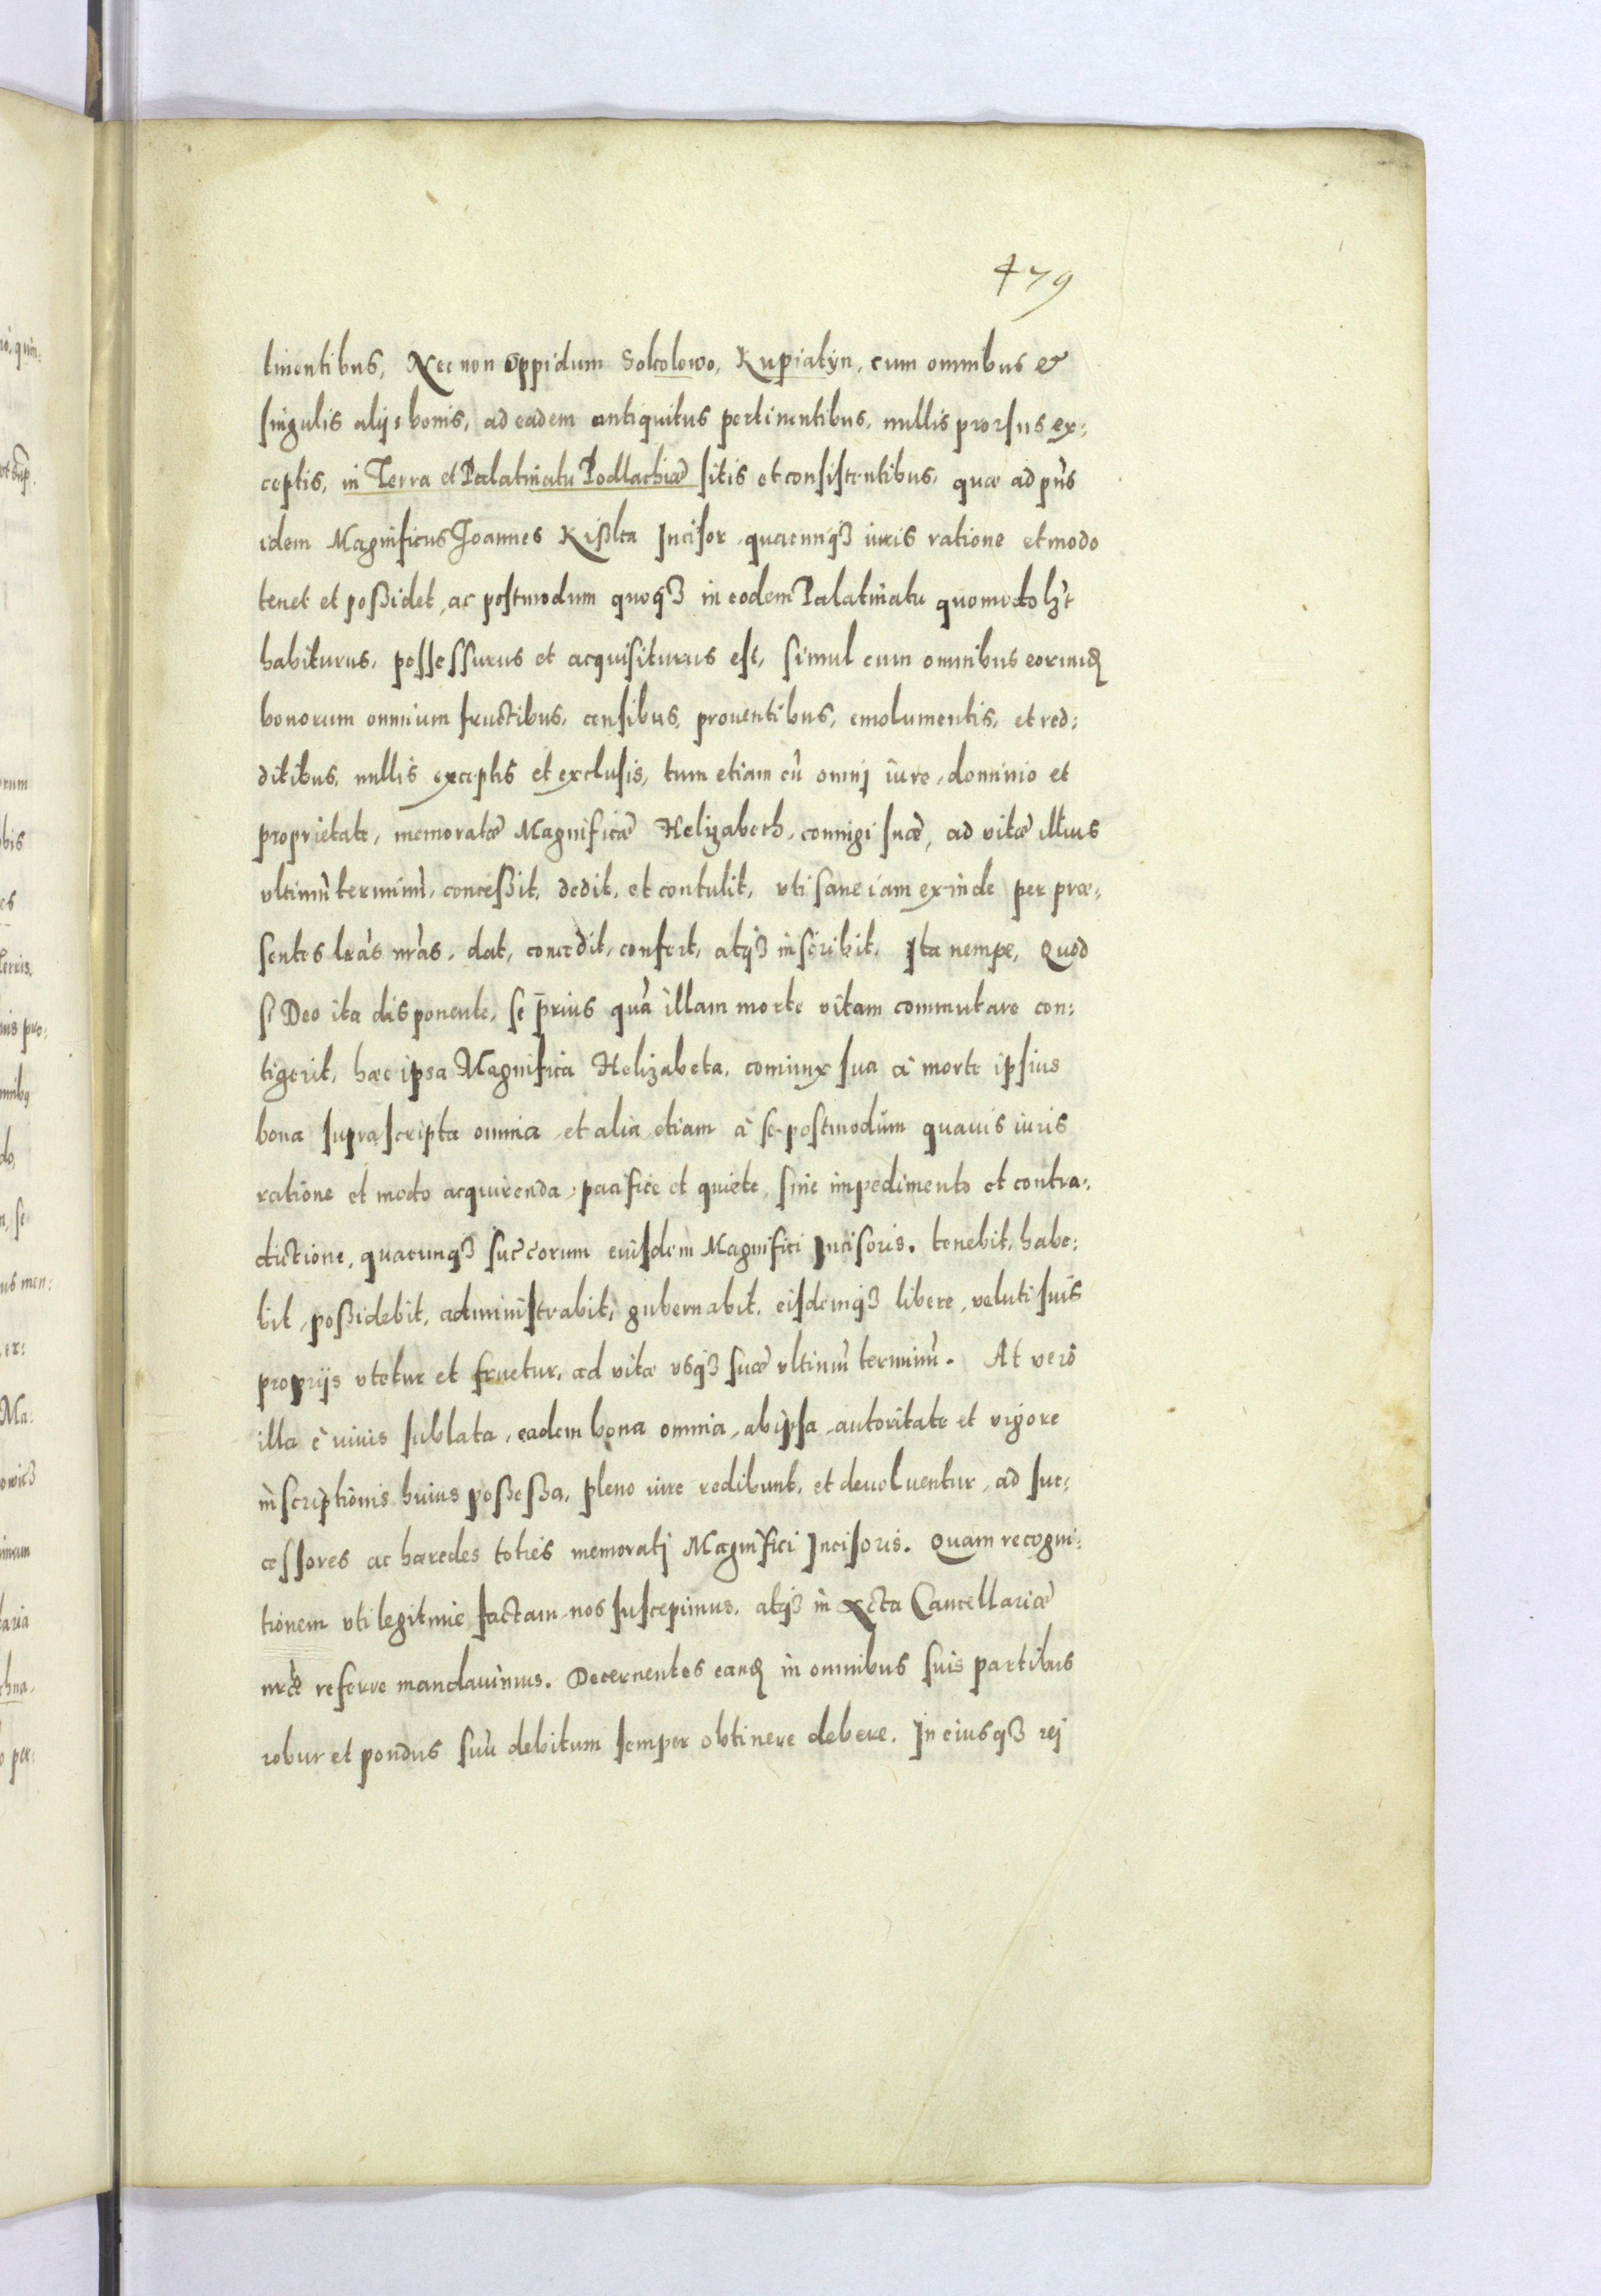 479
tinentibus, Nec non oppidum Sokolowo, Kupiatyn, cum omnibus et
singulis alijs bonis, ad eadem antiquitus pertinentibus, nullis prorsus ex:
ceptis, in Terra et Palatinatu Podlachiæ sitis et consistentibus, quæ ad pn̄s
idem Magnificus Joannes Kißka Incisor quacunqȝ iuris ratione et modo
tenet et poßidet, ac postmodum quoqȝ in eodem Palatinatu quomodolȝt
habiturus, possessurus et acquisiturus est, simul cum omnibus eorund
bonorum omnium fructibus, censibus, prouentibus, emolumentis, et red:
ditibus, nullis exceptis et exclusis, tum etiam cū omnj iure, dominio et
proprietate, memoratæ Magnificæ Helizabeth, coniugi suæ, ad vitæ illius
vltimū terminū, conceßit, dedit, et contulit, vti sane iam exinde per præ:
sentes lr̄as nr̄as, dat, concedit, confert, atqȝ inscribit. Ita nempe, Quod
si Deo ita disponente, se prius quā illam morte vitam commutare con:
tigerit, hæc ipsa Magnifica Helizabeta, coniunx sua à morte ipsius
bona suprascripta omnia et alia etiam à se postmodum quauis iuris
ratione et modo acquirenda, pacifice et quiete, sine impedimento et contra:
dictione, quacunqȝ succ̄orum eiusdem Magnifici Incisoris. tenebit, habe:
bit, poßidebit, administrabit, gubernabit, eisdemqȝ libere, veluti suis
proprijs vtetur et fruetur, ad vitæ vsqȝ suæ vltimū terminū. At verò
illa è viuis sublata, eadem bona omnia, ab ipsa, autoritate et vigore
inscriptionis huius poßeßa, pleno iure redibunt, et deuoluentur, ad suc:
cessores ac hæredes toties memoratj Magnifici Incisoris. Quam recogni:
tionem vti legitime factam nos suscepimus, atqȝ in Acta Cancellariæ
nr̄æ referre mandauimus. Decernentes eand in omnibus suis partibus
robur et pondus suū debitum semper obtinere debere. In eiusqȝ rej